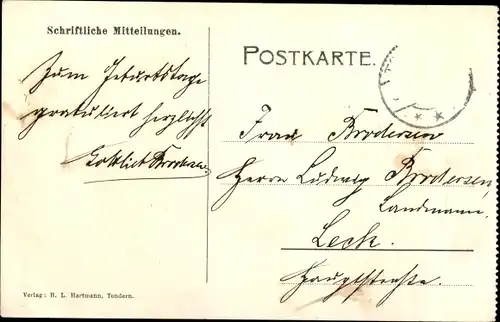 Schriftliche Mitteilungen.
POSTKARTE.
Zum Geburtstage
gratuliert herzlichst
Gottlieb Brodersen
Frau Brodersen
Herrn Ludwig Brodersen,
Landmann.
Leck.
Hauptstraße.
Verlag: R. L. Hartmann, Tondern.